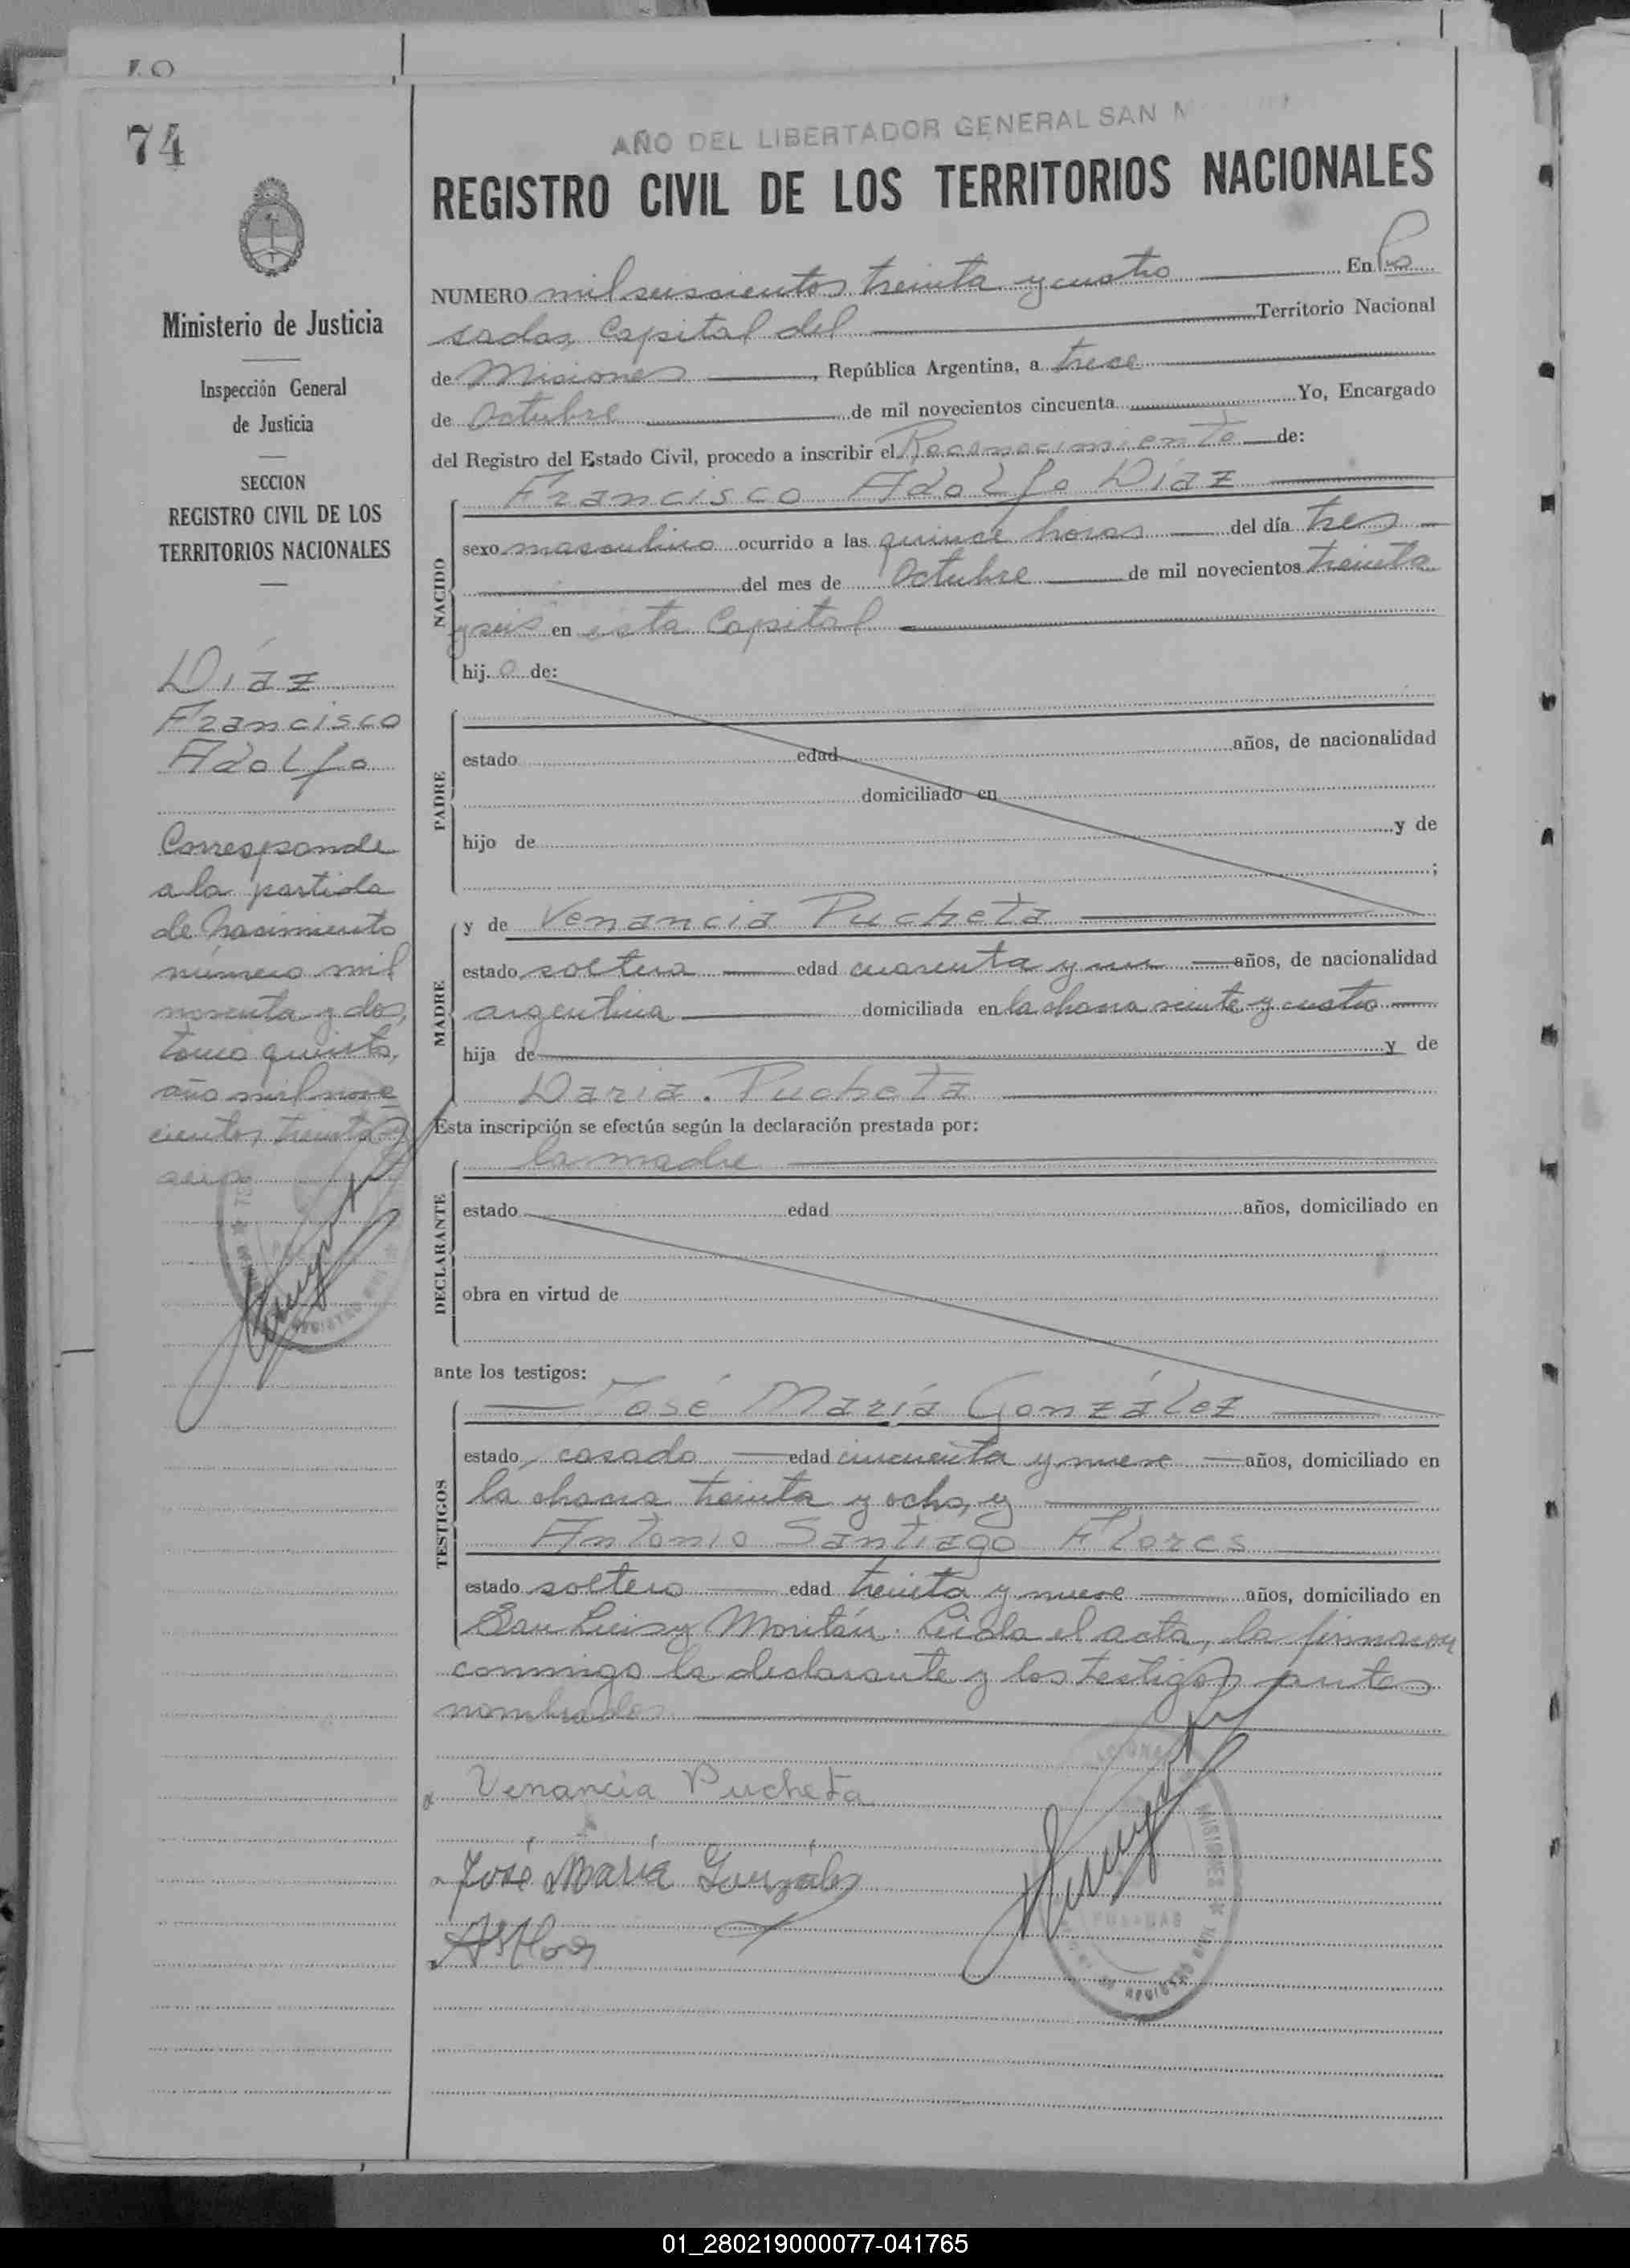 74
Ministerio de Justicia
Inspección General
de Justicia
SECCION
REGISTRO CIVIL DE LOS
TERRITORIOS NACIONALES
Díaz
Francisco
Adolfo
Corresponde
a la partida
de nacimiento
número mil
noventa y dos,
tomo quinto,
año mil nove
cientos treinta y
seis
AÑO DEL LIBERTADOR GENERAL SAN M
REGISTRO CIVIL DE LOS TERRITORIOS NACIONALES
NUMERO mil seiscientos treinta y cuatro En Po
sadas Capital del Territorio Nacional
de Misiones, República Argentina, a trece
de Octubre de mil novecientos cincuenta Yo, Encargado
del Registro del Estado Civil, procedo a inscribir el Reconocimiento de:
Francisco Adolfo Díaz
NACIDO
sexo masculino ocurrido a las quince horas del día tres
del mes de Octubre de mil novecientos treinta
y seis en esta Capital
hij. o de:
PADRE
estado edad años, de nacionalidad
domiciliado en
hijo de y de
;
MADRE
y de Venancia Pucheta
estado soltera edad cuarenta y un años, de nacionalidad
argentina domiciliada en la chacra veinte y cuatro
hija de y de
Daria. Pucheta
Esta inscripción se efectúa según la declaración prestada por:
DECLARANTE
la madre
estado edad años, domiciliado en
obra en virtud de
ante los testigos:
TESTIGOS
José María González
estado casado edad cincuenta y nueve años, domiciliado en
la chacra treinta y ocho, y
Antonio Santiago Flores
estado soltero edad treinta y nueve años, domiciliado en
San Luis y Moritán. Leída el acta, la firmaron
conmigo la declarante y los testigos antes
nombrados
Venancia Pucheta
José María González
ASFlores
MISIONES
POSADAS
REGISTRO CIVIL
01_280219000077-041765